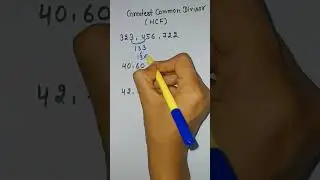 Greatest Common Divisor
(HCF)
323, 456, 722
133
40, 60
42,